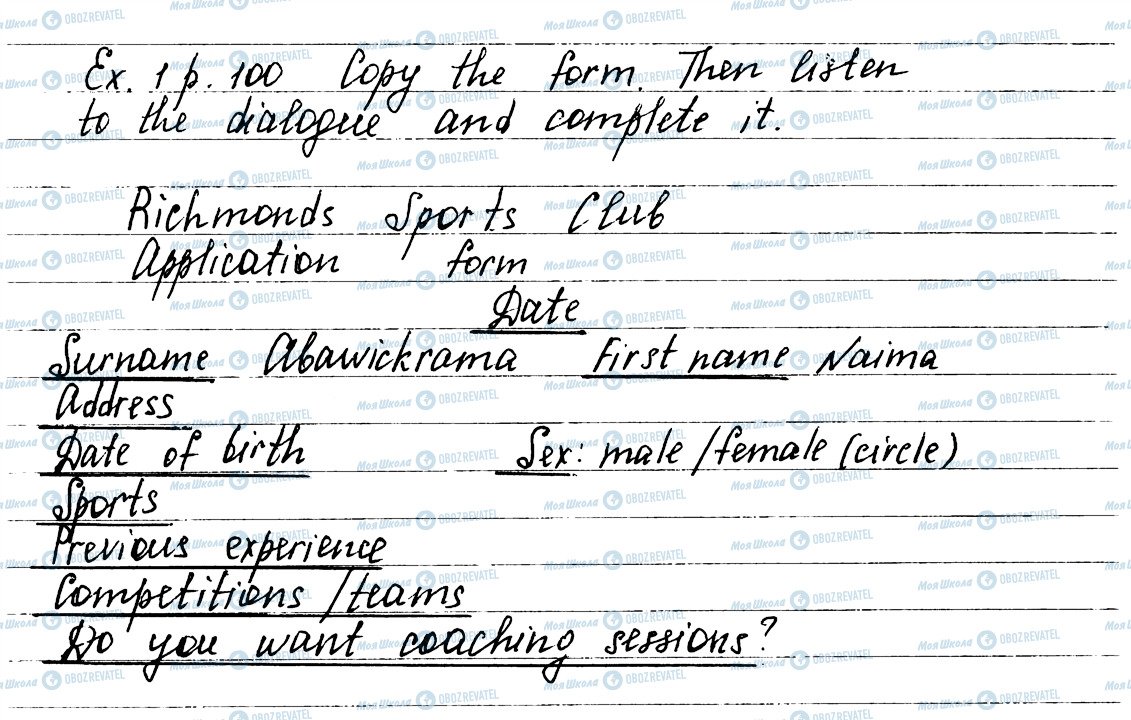 Ex. 1 p. 100 Copy the form. Then listen
to the dialogue and complete it.
Richmonds Sports Club
Application form
Date
Surname Abawickrama First name Naima
Address
Date of birth Sex: male/female (circle)
Sports
Previous experience
Competitions/teams
Do you want coaching sessions?